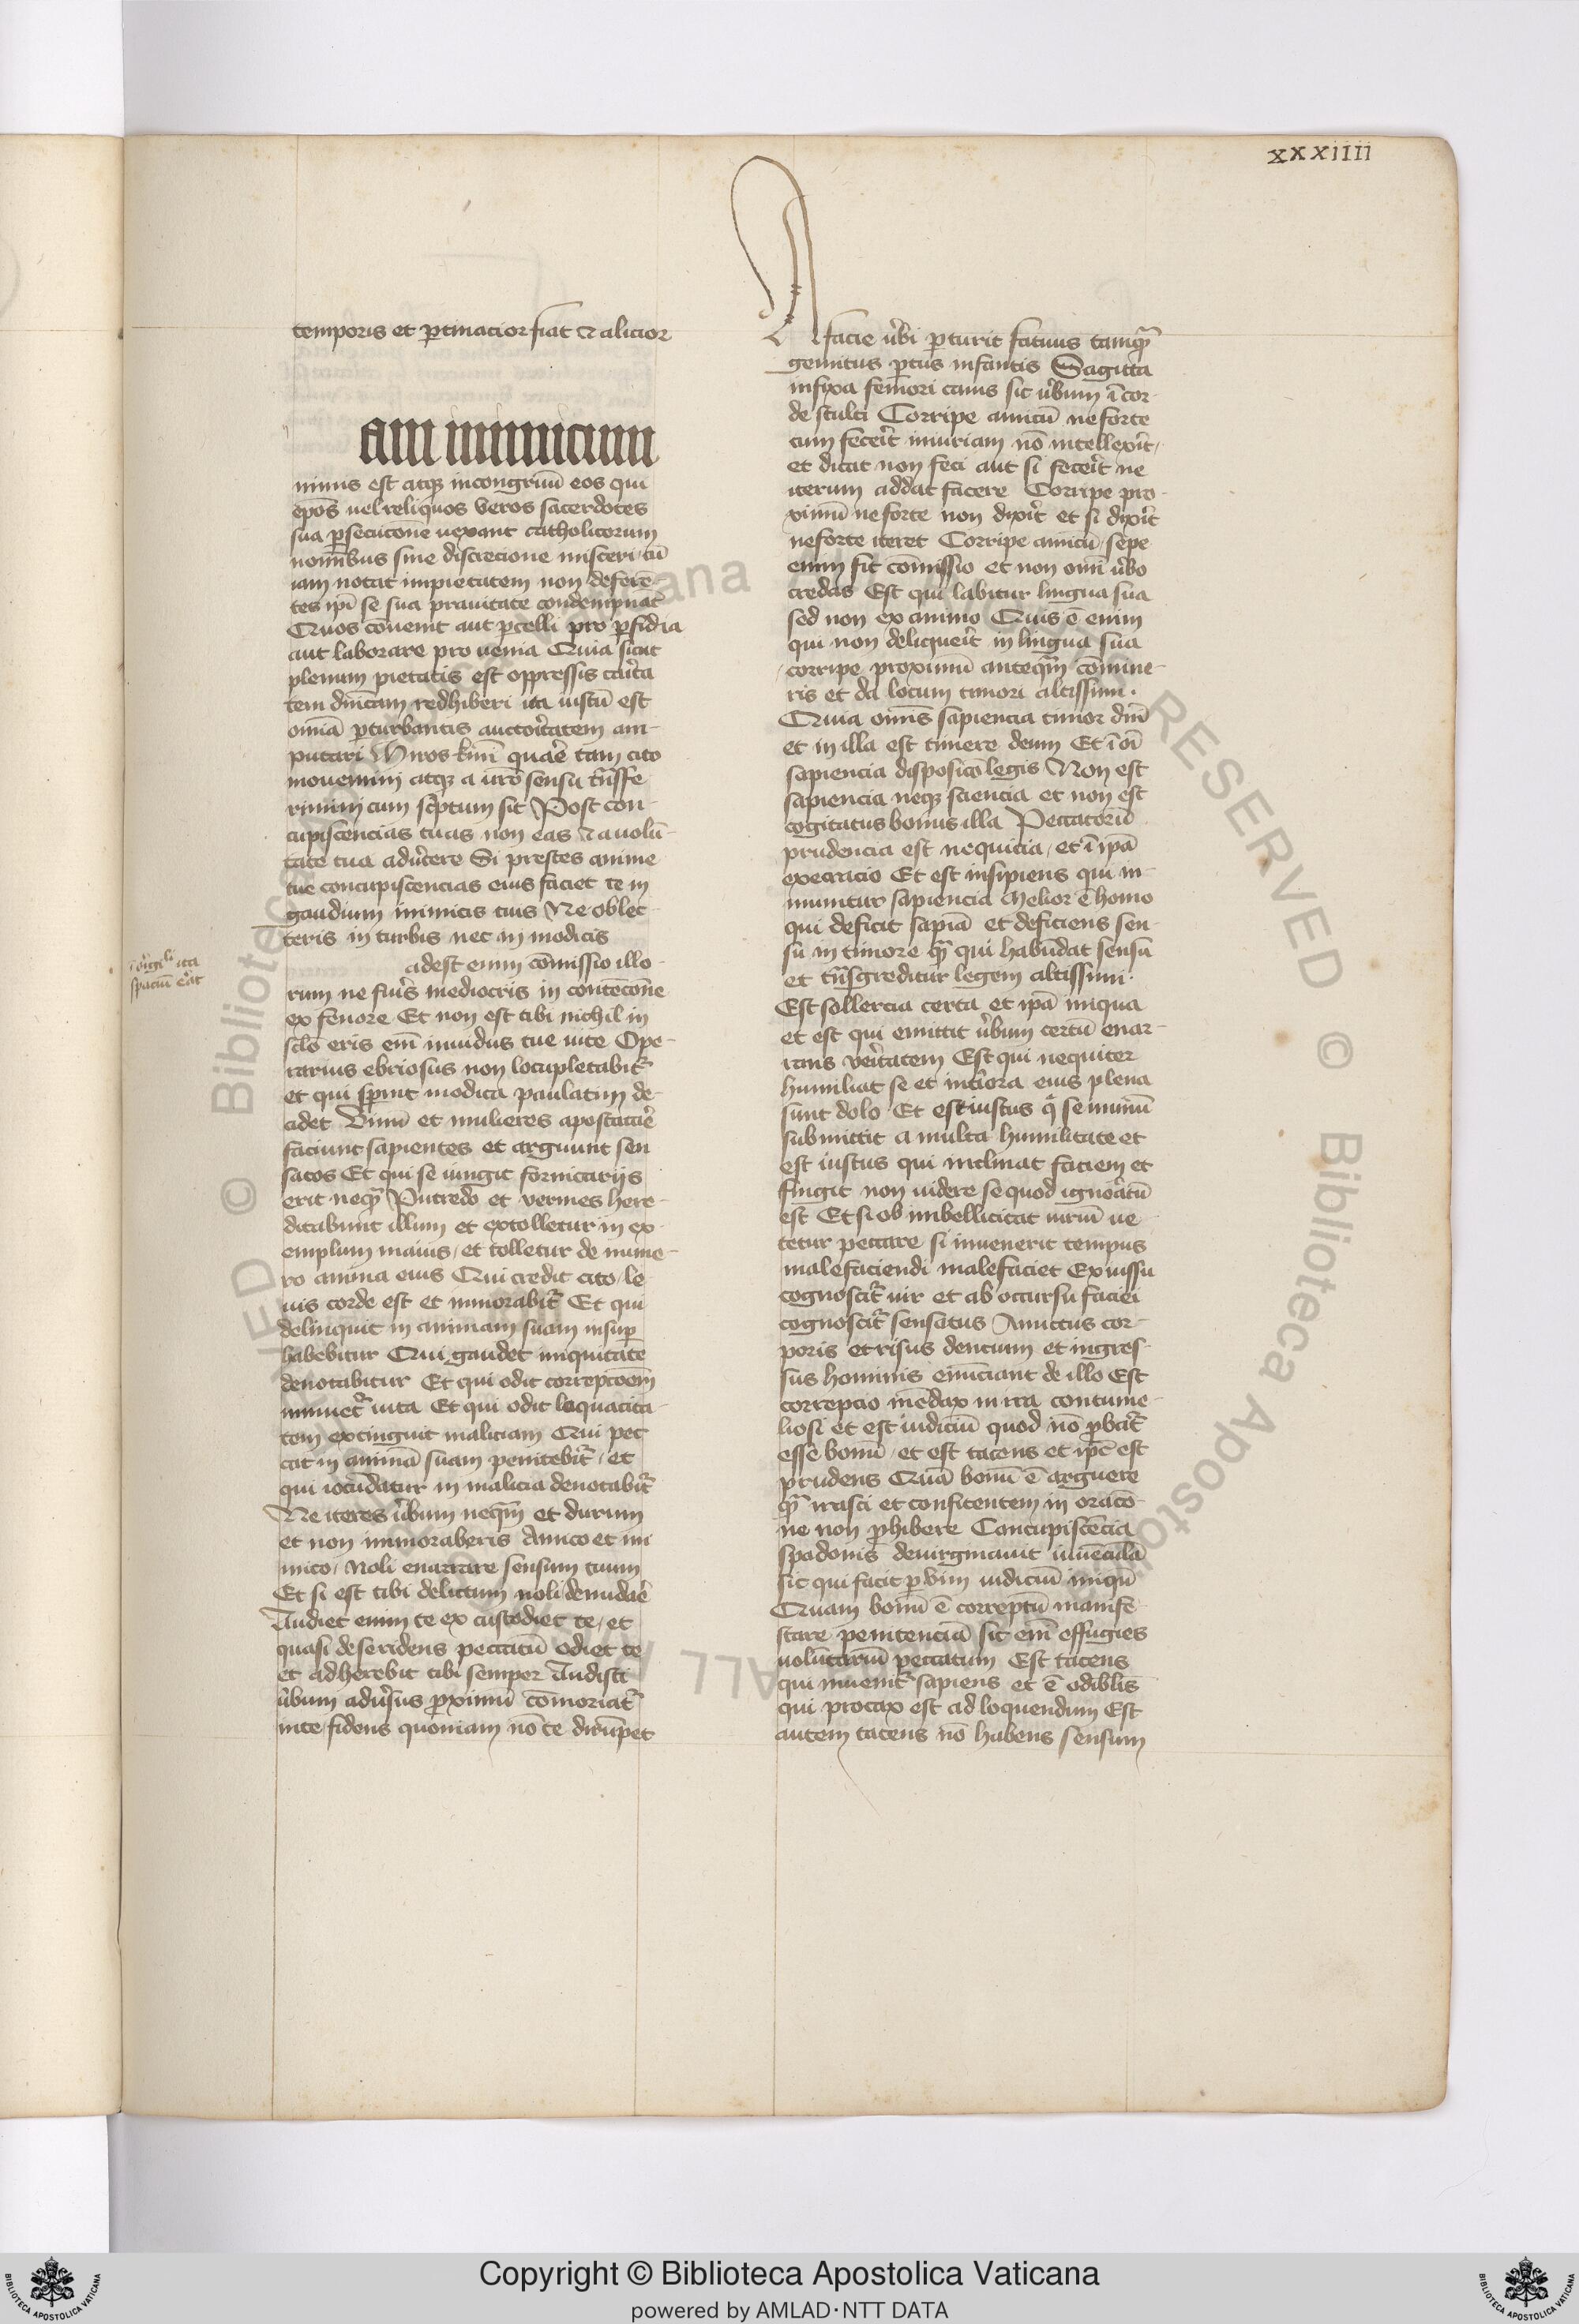 xxxiiii
temporis et ꝑtinacior fiat ⁊ alicior
am inimicum
nimis est atqꝫ incongruū eos qui
ep̄os uel reliquos veros sacerdotes
sua ꝑsecucōne uexant catholicorum
nomībus sine discrecione misceri, cū
iam notat impietatem non deferē-
tes ip̄i se sua prauitate condempnāt
Quos cōuenit aut ꝑcelli pro ꝑfidia
aut laborare pro uenia Quia sicut
plenum pietatis est oppressis cār̄ta
tem dn̄icam redhiberi ita iustū est
omīa ꝑturbantis auctor̄tatem am-
putari
mouemini atqꝫ a ūro sensu trn̄sfe
rimini cum scͥptum sit Post con-
cupiscencias tuas non eas ⁊ a uolū-
tate tua adūtere Si prestes anime
tue concupiscencias eius faciet te in
gaudium inimicis tuis Ne oblec-
teris in turbis nec in modicis
origīli ita
spaciū erāt
adest enim cōmissio illo-
rum ne fuīs mediocris in contēcōne
ex fenore Et non est tibi nichil in
sclō eris em̄ inuidus tue uite Ope-
rarius ebriosus non locupletabit᷑
et qui spͥnit modica paulatim de-
cidet Vinū et mulieres apostataē
faciunt sapientes et arguunt sen
satos Et qui se iungit fornicarijs
erit neqͣ Putredo et vermes here-
ditabunt illum et extolletur in ex-
emplum maius, et tolletur de nume-
ro anima eius Qui credit cito, le
uis corde est et minorabit᷑ Et qui
delinquit in animam suam insuꝑ
habebitur Qui gaudet iniquitate
denotabitur Et qui odit correpcōem
minuet᷑ uita Et qui odit loquacita-
tem extinguit maliciam Qui pec
cat in animā suam penitebit᷑, et
qui iocūdatur in malicia denotabit᷑
Ne iteres ūbum neqͣm et durum
et non minoraberis Amico et in
imico, Noli enarrare sensum tuum
Et si est tibi delictum noli denudaē
Audiet enim te ex custodiet te, et
quasi deseridens peccatū odiet te
et adherebit tibi semper Audisti
ūbum adūsus ꝓximū cōmoriat᷑
inte fidens quoniam nō te dirūpet
A facie ūbi ꝑturit fatuus tamqͣ
gemitus ꝑtus infantis Sagitta
infixa femori canis sic ūbum ī cor-
de stulti Corripe amicū ne forte
cum fecerīt iniuriam nō intellexīt,
et dicat non feci aut si fecerīt ne
iterum addat facere Corripe pro-
ximū ne forte non dixīt et si dixīt
ne forte iteret Corripe amicū, sepe
enim fit cōmissio et non omī ūbo
credas Est qui labitur lingua sua
sed non ex animo Quis ē enim
qui non deliquerīt in lingua sua
corripe proximū anteqͣm cōmine-
ris et da locum timori altissimi.
Quia omīs sapiencia timor dn̄i
et in illa est timere deum Et ī oī
sapiencia disposicō legis Non est
sapiencia neqꝫ sciencia et non est
cogitatus bonus illa Peccatorū
prudencia est nequicia, et ī ipā
execracio Et est insipiens qui in-
minuitur sapiencia Melior ē homo
qui deficit sapīa et deficiens sen-
su in timore qͣ qui habūdat sensū
et trn̄sgreditur legem altissimi.
Est sollercia certa et ipā iniqua
et est qui emittit ūbum certū enar-
rans verītatem Est qui nequiter
humiliat se et intīora eius plena
sunt dolo Et est iustus qͥ se nimiū
submittit a multa humilitate et
est iustus qui inclinat faciem et
fingit non uidere se quod ignorātū
est Et si ob imbellicitat uiriū ue
tetur peccare si inuenerit tempus
malefaciendi malefaciet Ex uissu
cognoscit᷑ uir et ab occursu faciei
cognoscit᷑ sensatus Amictus cor-
poris et risus dencium et ingres-
sus hominis enūciant de illo Est
correpcio mēdax in ira contume-
liosi et est iudiciū quod nō ꝓbat᷑
esse bonū, et est tacens et ip̄e est
prudens Quā bonū ē arguere
qͣ irasci et confitentem in oracō-
ne non ꝓhibere Concupiscēcia
spadonis deuirginauit iuuēculā
sic qui facit ꝑ vim iudiciū iniqū
Quam bonū ē correptū manife-
stare penitenciā sic em̄ effugies
uolūtariū peccatum Est tacens
qui inuenit᷑ sapiens et ē odiblīs
qui procax est ad loquendum Est
autem tacens nō habens sensum
Copyright © Biblioteca Apostolica Vaticana
powered by AMLAD·NTT DATA